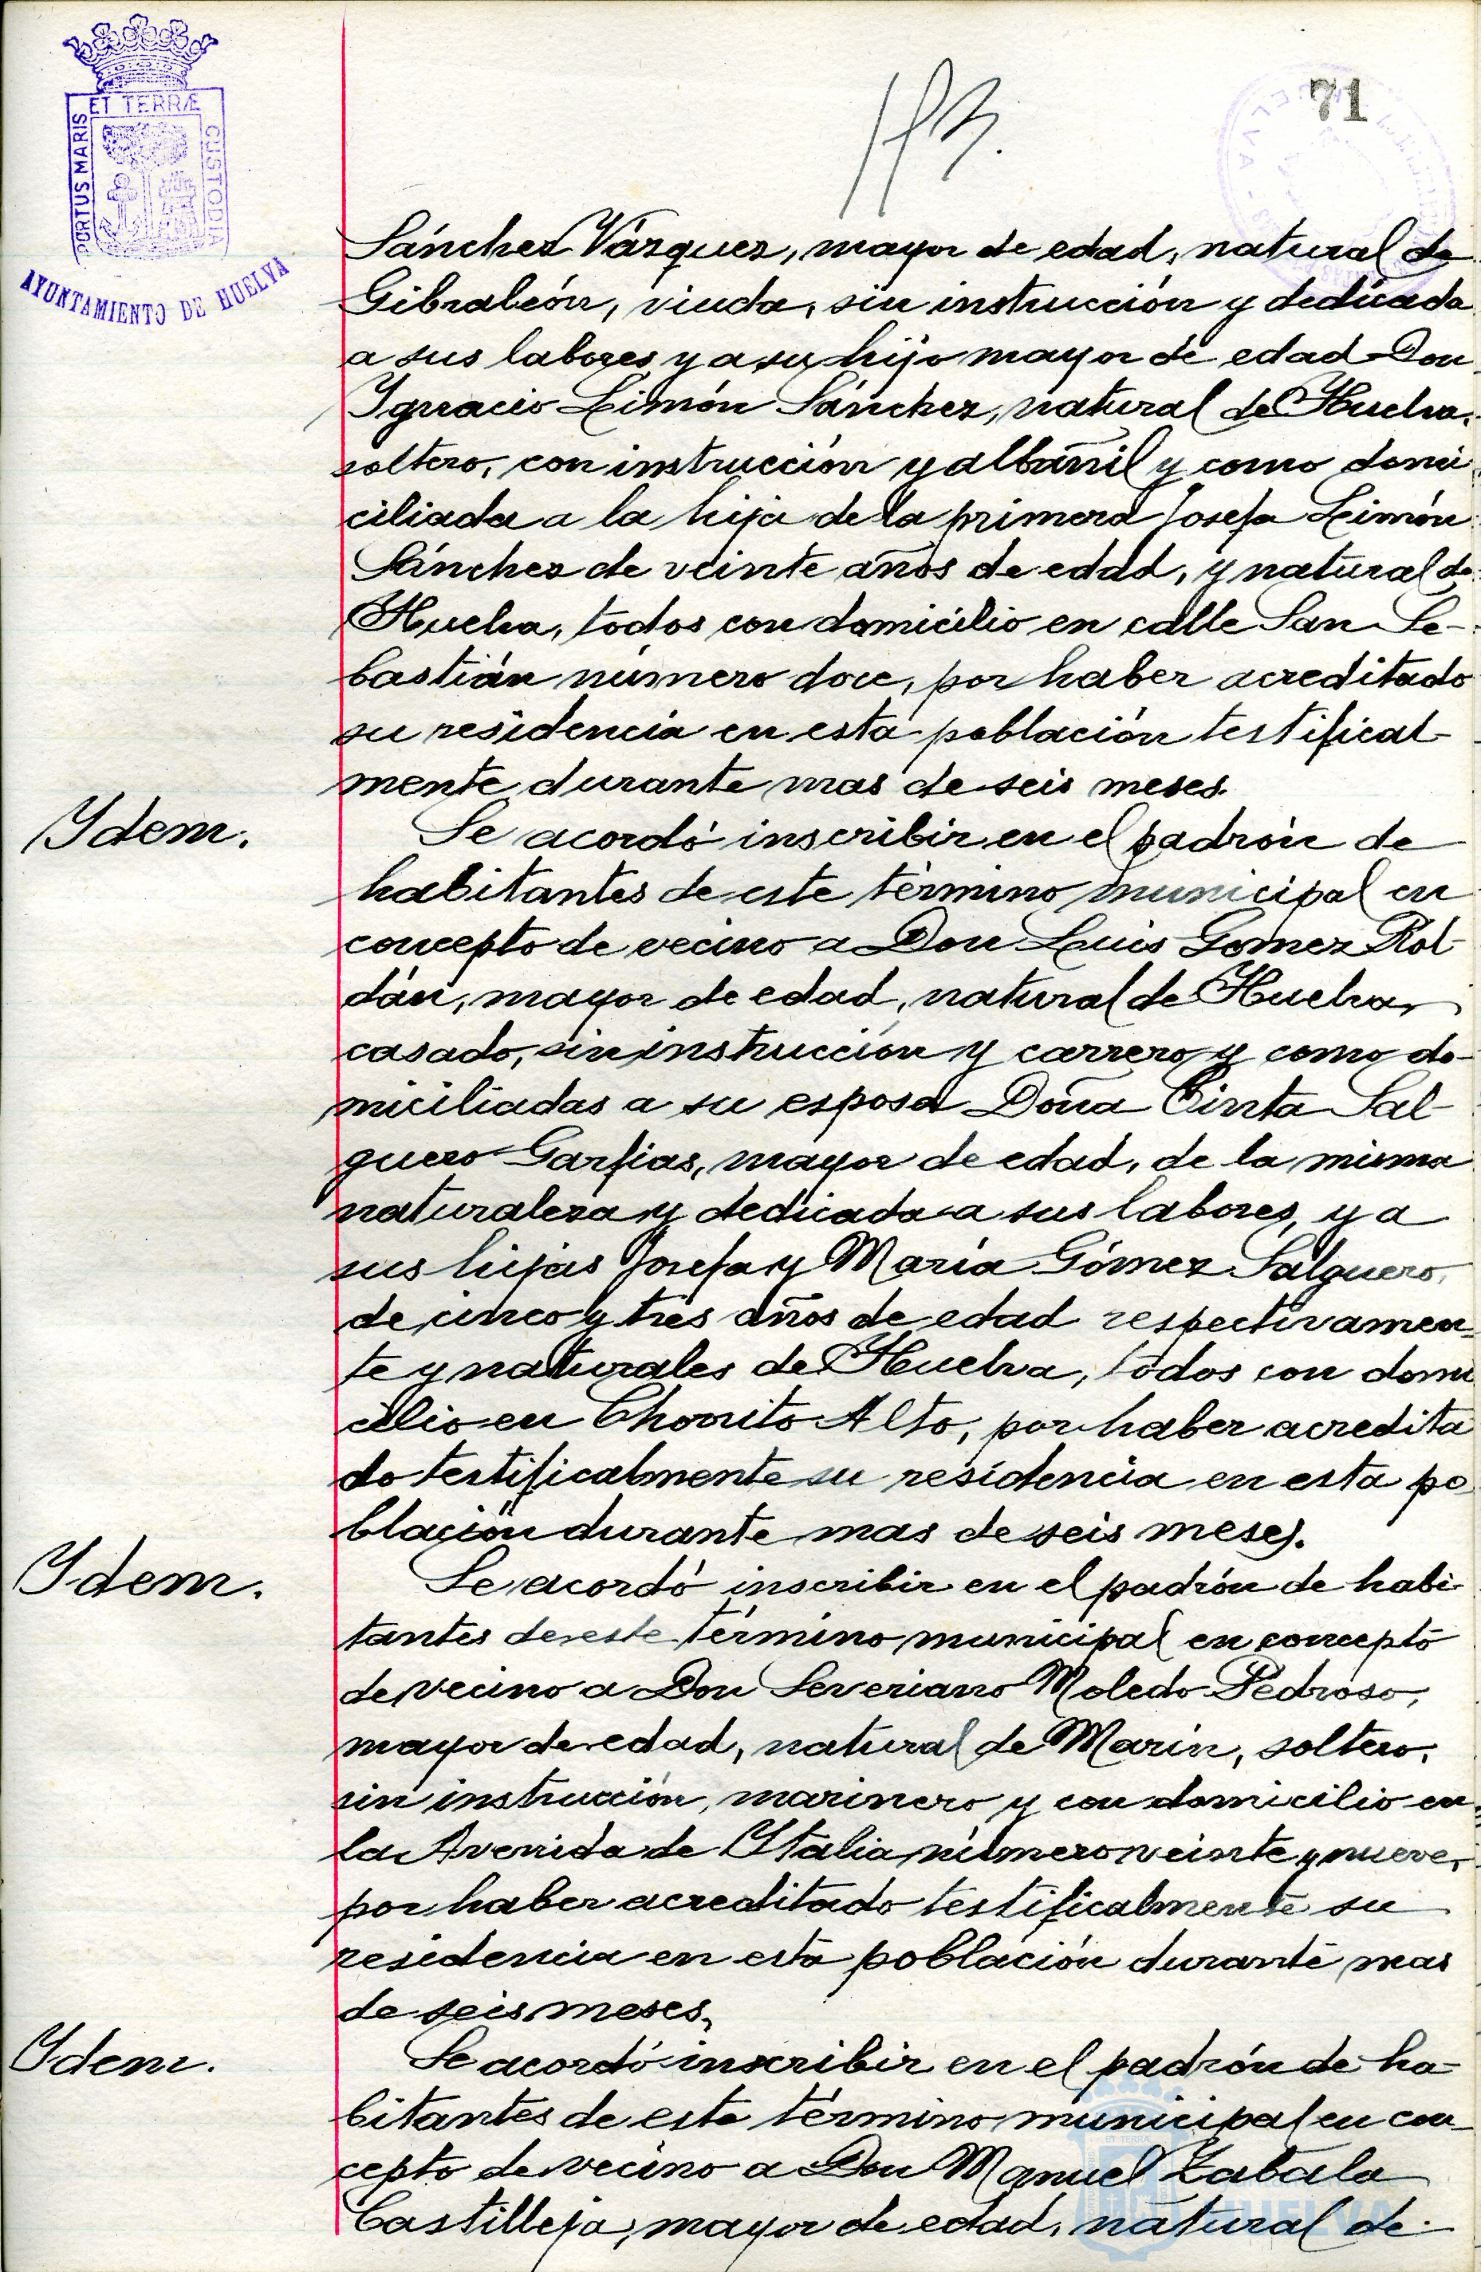 ET TERRÆ
PORTUS MARIS
CUSTODIA
AYUNTAMIENTO DE HUELVA
71
Sánchez Vázquez, mayor de edad, natural de
Gibraleón, viuda, sin instrucción y dedicada
a sus labores y a su hijo mayor de edad Don
Ygnacio Limón Sánchez, natural de Huelva,
soltero, con instrucción y albañil y como domi
ciliada a la hija de la primera Josefa Limón
Sánchez de veinte años de edad, y natural de
Huelva, todos con domicilio en calle San Se-
bastián número doce, por haber acreditado
su residencia en esta población testifical-
mente durante mas de seis meses.
Ydem.
Se acordó inscribir en el padrón de
habitantes de este término municipal en
concepto de vecino a Don Luis Gomez Rol-
dán, mayor de edad, natural de Huelva,
casado, sin instrucción y carrero y como do-
miciliadas a su esposa Doña Cinta Sal-
guero Garfias, mayor de edad, de la misma
naturaleza y dedicada a sus labores, y a
sus hijas Josefa y María Gómez Salguero,
de cinco y tres años de edad respectivamen-
te y naturales de Huelva, todos con domi
cilio en Chorrito Alto, por haber acredita
do testificalmente su residencia en esta po
blación durante mas de seis meses.
Ydem.
Se acordó inscribir en el padrón de habi-
tantes de este término municipal en concepto
de vecino a Don Severiano Moledo Pedroso,
mayor de edad, natural de Marín, soltero,
sin instrucción, marinero y con domicilio en
la Avenida de Ytalia, número veinte y nueve,
por haber acreditado testificalmente su
residencia en esta población durante mas
de seis meses.
Ydem.
Se acordó inscribir en el padrón de ha-
bitantes de este término municipal en con-
cepto de vecino a Don Manuel Zabala
Castilleja, mayor de edad, natural de
HUELVA